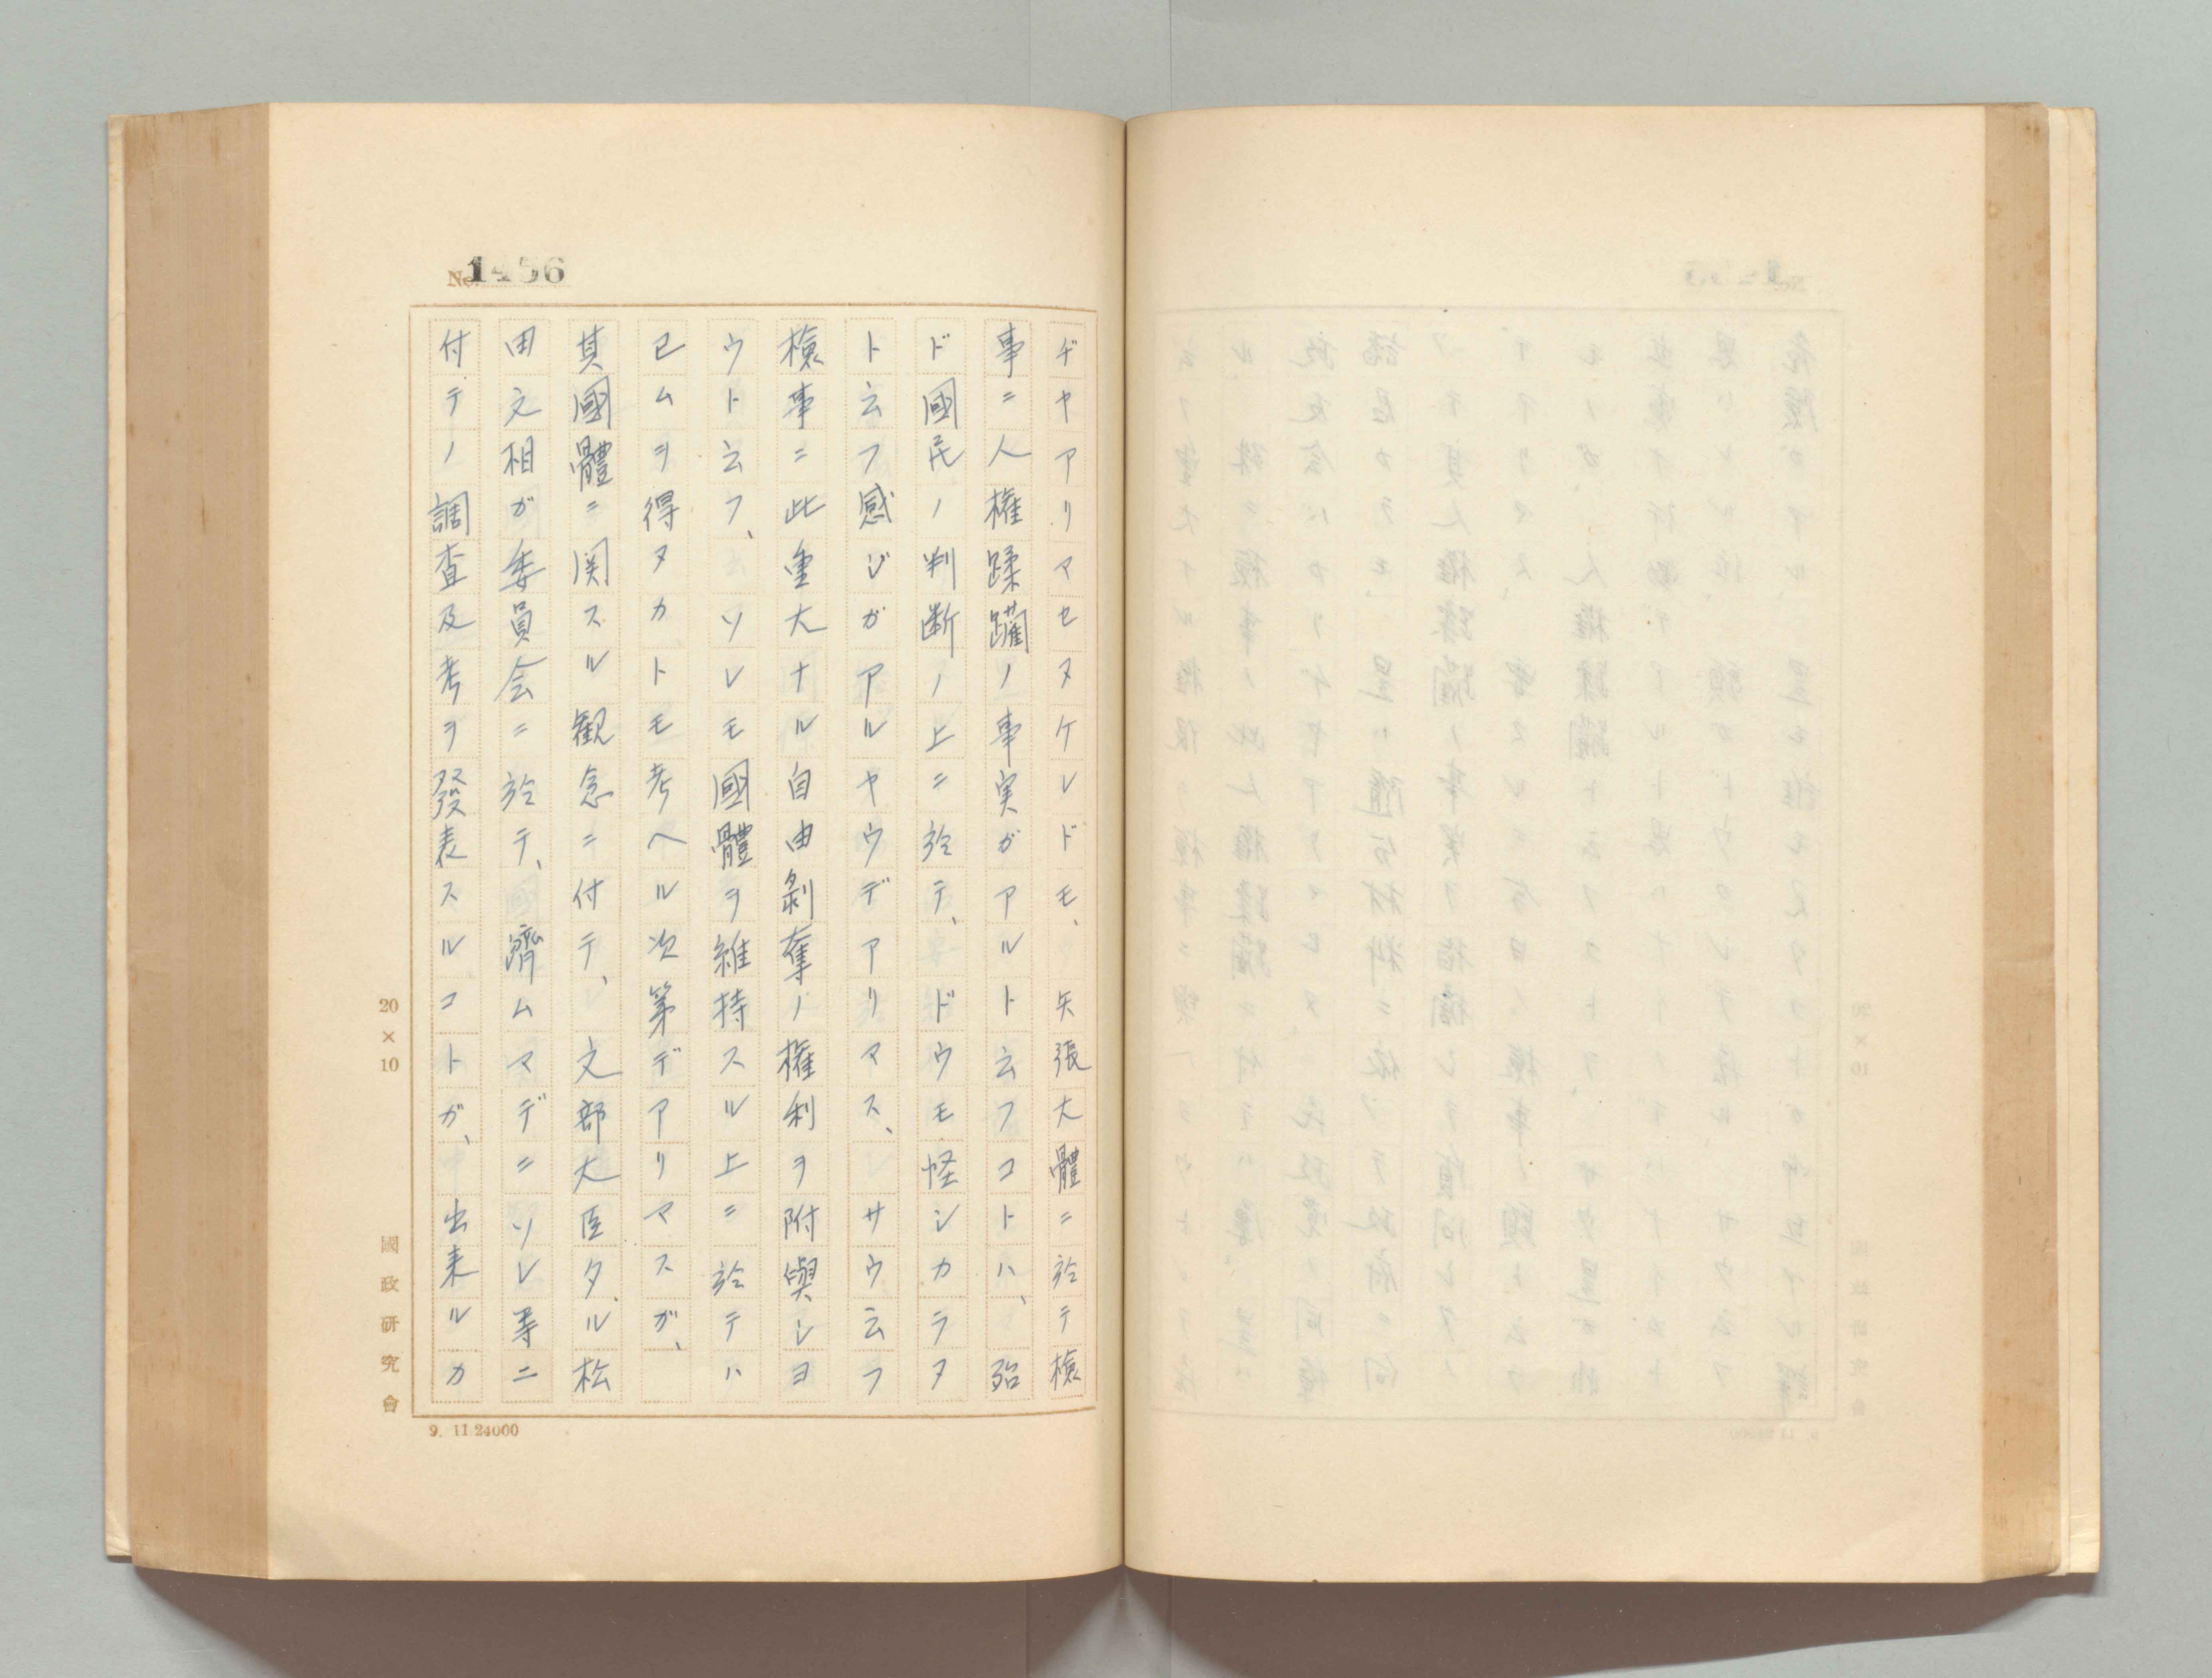 No. 1456
ヂヤアリマセヌケレドモ、矢張大體ニ於テ檢
事ニ人権蹂躙ノ事実ガアルト云フコトハ、殆
ド國民ノ判断ノ上ニ於テ、ドウモ怪シカラヌ
ト云フ感ジガアルヤウデアリマス、サウ云フ
檢事ニ此重大ナル自由剝奪ノ権利ヲ附與シヨ
ウト云フ、ソレモ國體ヲ維持スル上ニ於テハ
已ムヲ得ヌカトモ考ヘル次第デアリマスガ、
其國體ニ関スル観念ニ付テ、文部大臣タル松
田文相ガ委員会ニ於テ、躋ムマデニソレ等ニ
付テノ調査及考ヲ發表スルコトガ、出来ルカ
20×10
國政研究會
9. 11.24000